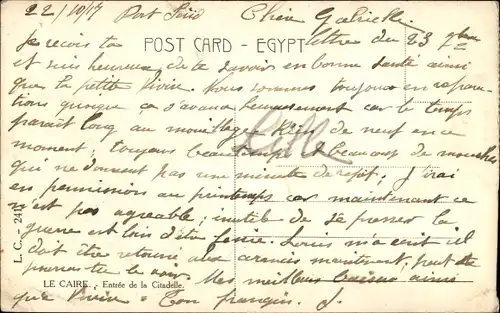 22/10/17 Port Said Chère Gabrielle
Je reçois ta lettre du 23 7bre
POST CARD - EGYPT
et suis heureux de te savoir en bonne santé ainsi
que la petite Vivie. Nous sommes toujours en répara-
tions quoique ça s'avance heureusement car le temps
paraît long au mouillage. Rien de neuf en ce
moment; toujours beau temps & beaucoup de mouches
qui ne donnent pas une minute de répit; J'irai
en permission au printemps car maintenant ce
n'est pas agréable; inutile de se presser la
guerre est loin d'être finie. Louis m'a écrit il
doit être retourné aux armées maintenant; peut-être
pourras-tu le voir. Mes meilleurs baisers ainsi
que Vivie. Ton françois. J.
L. C. 24
LE CAIRE. - Entrée de la Citadelle.